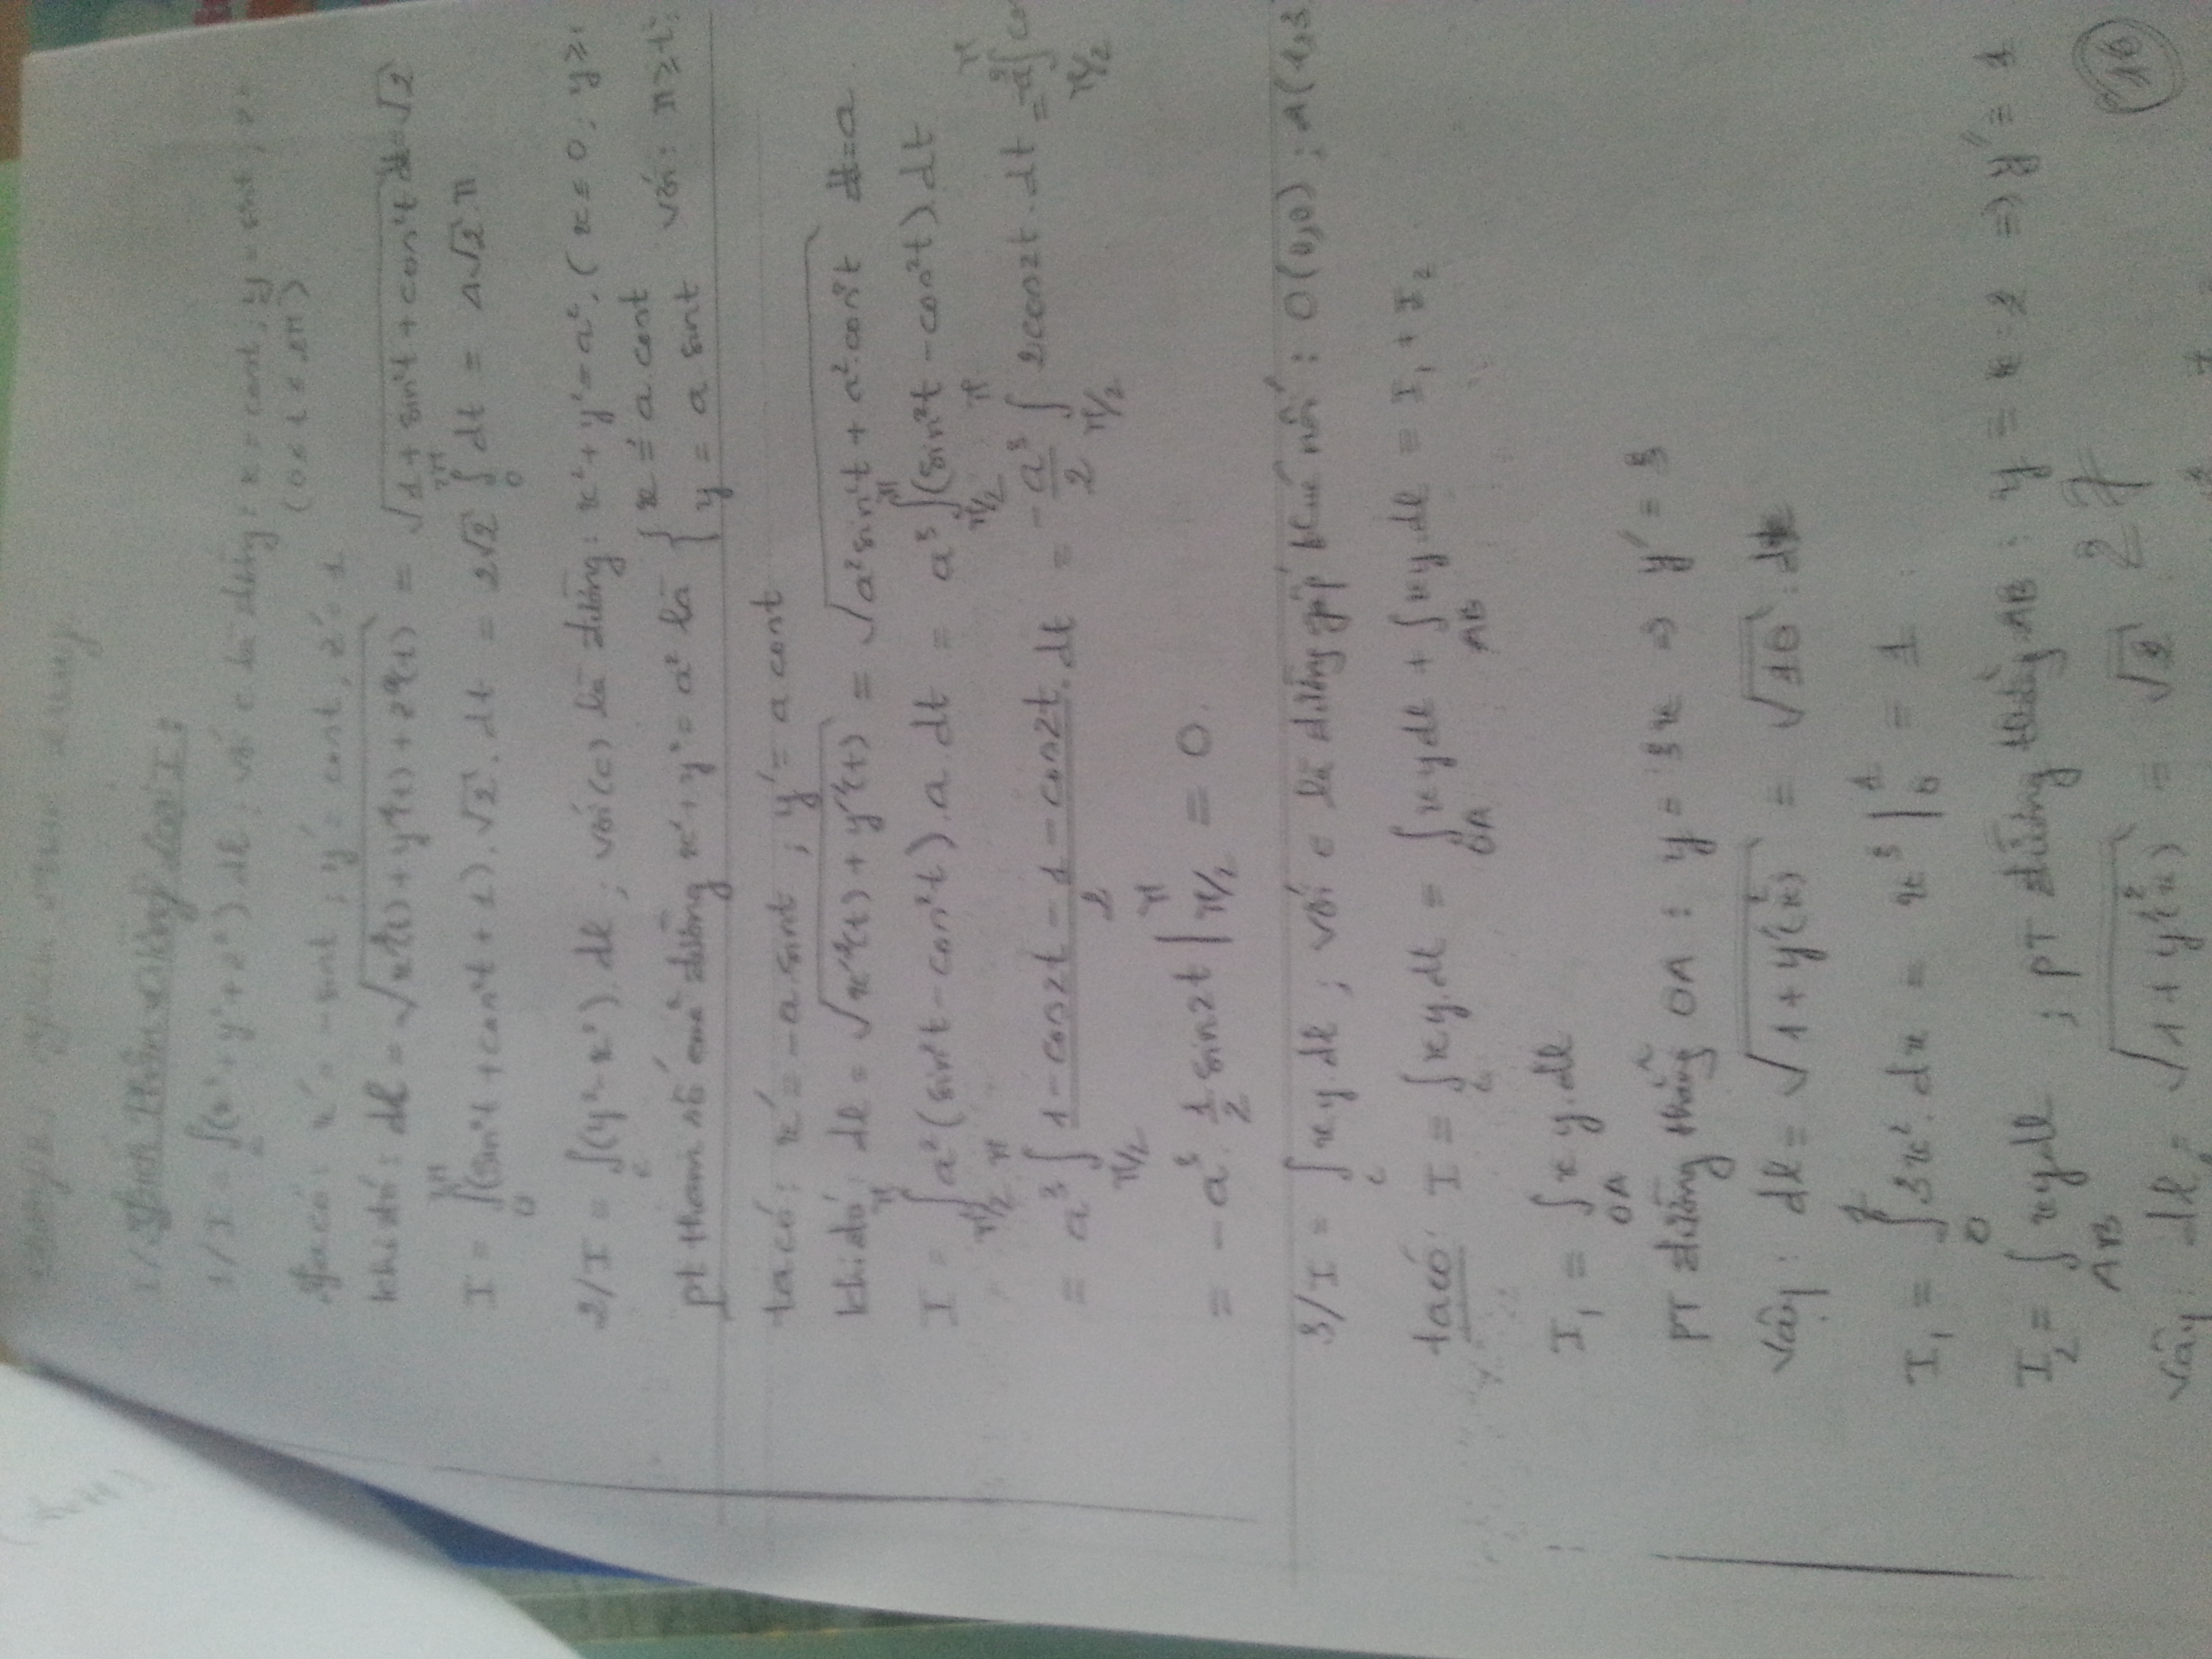 I/ Tích phân đường loại I:
1/ I = ∫_c (x² + y² + z²).dl ; với c là đường: x = cost, y = sint, z =
(0 ≤ t ≤ 2π)
Ta có: x' = -sint ; y' = cost, z' = 1
khi đó: dl = √(x'²(t) + y'²(t) + z'²(t)) = √(1 + sin²t + cos²t) dt = √2
I = ∫_0^2π (sin²t + cos²t + 1).√2.dt = 2√2 ∫_0^2π dt = 4√2.π
2/ I = ∫_c (y² - x²).dl ; với (c) là đường: x² + y² = a², (x ≤ 0; y ≥
pt tham số của đường x² + y² = a² là { x = a.cost
y = a.sint với: π ≥ t
ta có: x' = -a.sint ; y' = a.cost
khi đó: dl = √(x'²(t) + y'²(t)) = √(a²sin²t + a².cos²t) dt = a
I = ∫_π/2^π a²(sin²t - cos²t).a.dt = a³ ∫_π/2^π (sin²t - cos²t).dt
= a³ ∫_π/2^π (1 - cos2t - 1 - cos2t)/2 .dt = -a³/2 ∫_π/2^π 2cos2t.dt = -a³ ∫_π/2^π co
= -a³. 1/2 sin2t |_π/2^π = 0.
3/ I = ∫_c xy.dl ; với c là đường gấp khúc nối: O(0,0) ; A(1,3
ta có: I = ∫_c xy.dl = ∫_OA xydl + ∫_AB xy.dl = I₁ + I₂
I₁ = ∫_OA xy.dl
PT đường thẳng OA : y = 3x ⇒ y' = 3
Vậy: dl = √(1 + y'²(x)) = √10 .dx
I₁ = ∫_0^1 3x².dx = x³ |_0^1 = 1
I₂ = ∫_AB xydl ; PT đường thẳng AB : y = x 2 ⇒ y' = 1
27
16
Vậy: dl = √(1 + y'²(x)) = √2